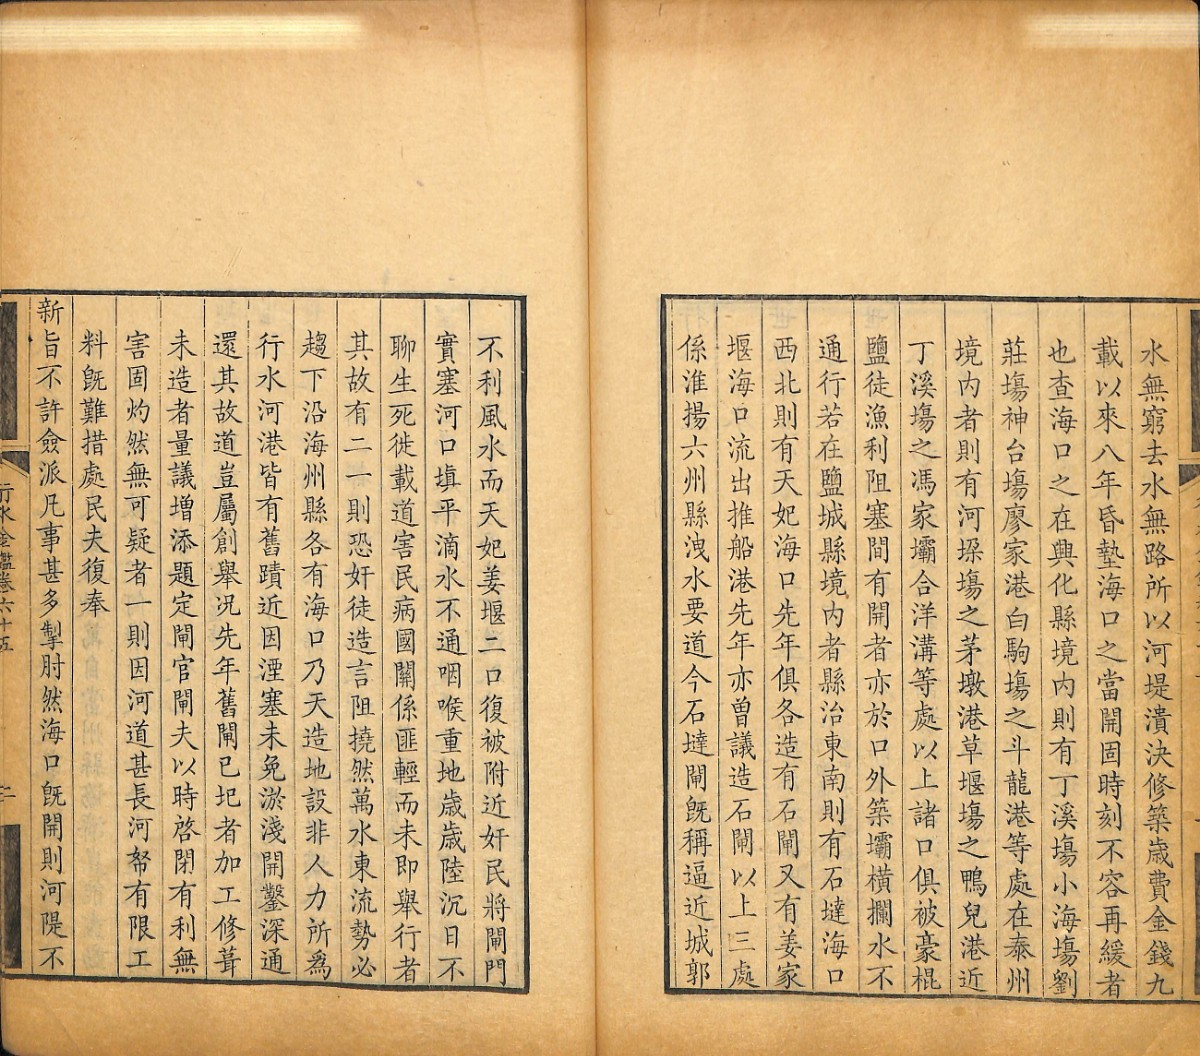 水無窮去水無路所以河堤潰決修築歲費金錢九
載以來八年昏墊海口之當開固時刻不容再緩者
也查海口之在興化縣境內則有丁溪塲小海塲劉
莊塲神台塲廖家港白駒塲之斗龍港等處在泰州
境內者則有河垛塲之茅墩港草堰塲之鴨兒港近
丁溪塲之馮家壩合洋溝等處以上諸口俱被豪棍
鹽徒漁利阻塞間有開者亦於口外築壩橫攔水不
通行若在鹽城縣境內者縣治東南則有石䃮海口
西北則有天妃海口先年俱各造有石閘又有姜家
堰海口流出推船港先年亦曾議造石閘以上三處
係淮揚六州縣洩水要道今石䃮閘旣稱逼近城郭
不利風水而天妃姜堰二口復被附近奸民將閘門
實塞河口塡平滴水不通咽喉重地歲歲陸沉日不
聊生死徙載道害民病國關係匪輕而未卽舉行者
其故有二一則恐奸徒造言阻撓然萬水東流勢必
趨下沿海州縣各有海口乃天造地設非人力所爲
行水河港皆有舊蹟近因湮塞未免淤淺開鑿深通
還其故道豈屬創舉况先年舊閘已圮者加工修葺
未造者量議增添題定閘官閘夫以時啓閉有利無
害固灼然無可疑者一則因河道甚長河帑有限工
料旣難措處民夫復奉
新旨不許僉派凡事甚多掣肘然海口旣開則河隄不
行水金鑑卷六十五
二